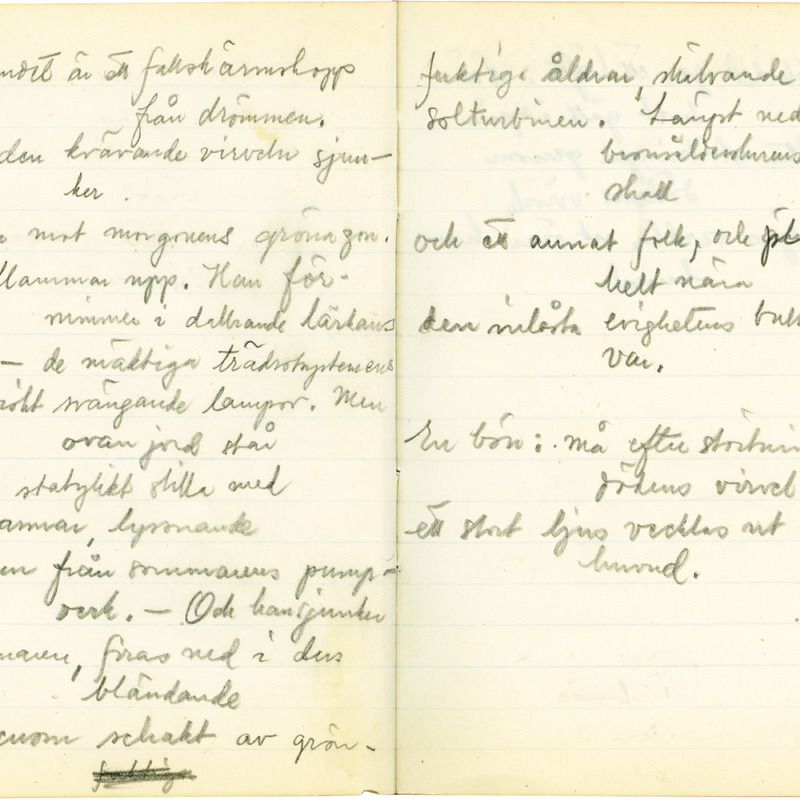 är ett fallskärmshopp
från drömmen.
den kvävande virveln sjun-
ker.
mot morgonens gröna zon.
flammar upp. Han för-
nimmer i dallrande lärkans
— de mäktiga trädrotsystemens
svängande lampor. Men
ovan jord står
stilla med
lyssnande
från sommarens pump-
verk. — Och han sjunker
firas ned i dess
bländande
genom schakt av grön-
fuktiga åldrar, skälvande
solturbinen. Längst ned
bronsålderslurens
skall
och ett annat folk, och
helt nära
den inlåsta evighetens
var.
En bön: må efter
dödens virvel
ett stort ljus vecklas ut
huvud.